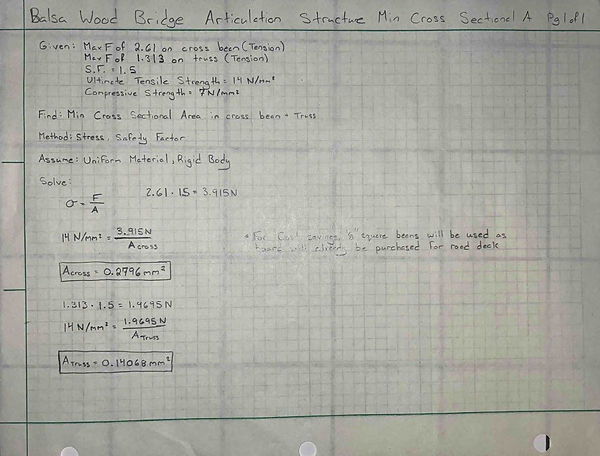 Balsa Wood Bridge Articulation Structure Min Cross Sectional A Pg 1 of 1
Given: Max F of 2.61 on cross bean (Tension)
Max F of 1.313 on truss (Tension)
S.F. = 1.5
Ultimate Tensile Strength = 14 N/mm²
Compressive Strength = 7N/mm²
Find: Min Cross Sectional Area in cross bean + Truss
Method: Stress, Safety Factor
Assume: Uniform Material, Rigid Body
Solve:
σ = F/A 2.61 · 1.5 = 3.915N
14 N/mm² = 3.915N / A cross
* For Cost savings, square beens will be used as
board will already be purchased for road deck
A cross = 0.2796 mm²
1.313 · 1.5 = 1.9695 N
14 N/mm² = 1.9695N / A Truss
A Truss = 0.14068 mm²